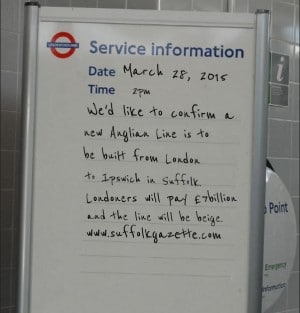 UNDERGROUND
Service information
Date March 28, 2015
Time 2pm
We'd like to confirm a
new Anglian Line is to
be built from London
to Ipswich in Suffolk.
Londoners will pay £7billion
and the line will be beige.
www.suffolkgazette.com
i
Point
Emergency
information